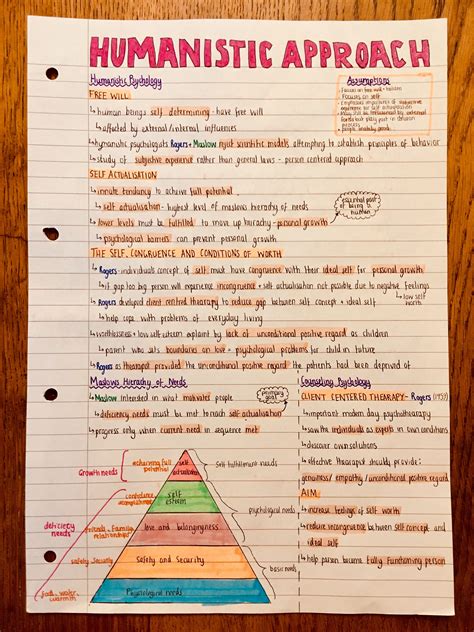 HUMANISTIC APPROACH
Humanistic Psychology
FREE WILL
↳ human beings self determining - have free will
↳ affected by external/internal influences
↳ Humanistic psychologists Rogers + Maslow reject scientific models attempting to establish principles of behaviour
↳ study of subjective experience rather than general laws - person centered approach
Assumptions
Focuses on self
people innately good
SELF ACTUALISATION
↳ innate tendancy to achieve full potential
↳ self actualisation - highest level of maslows hierachy of needs
↳ lower levels must be fulfilled to move up hierachy - personal growth
↳ psychological barriers can prevent personal growth
essential part of being a human
THE SELF, CONGRUENCE AND CONDITIONS OF WORTH
↳ Rogers - individuals concept of self must have congruence with their ideal self for personal growth
↳ if gap too big person will experience incongruence + self actualisation not possible due to negative feelings
↳ low self worth
↳ Rogers developed client centred thearapy to reduce gap between self concept + ideal self
↳ help cope with problems of everyday living
↳ worthlessness + low self esteem explaint by lack of unconditional positive regard as children
↳ parent who sets boundaries on love = psychological problems for child in future
↳ Rogers as thearapist provided the unconditional positive regard the patients had been deprived of
Maslows Hierachy of Needs
↳ Maslow intrested in what motivates people
primary goal
↳ deficiency needs must be met to reach self actualisation
↳ progress only when current need in sequence met
Growth needs
achieving full potential
self actualisation
Self fulfillment needs
deficiency needs
confidence
self esteem
psychological needs
friends + Family relationships
love and belongingness
safety/security
Safety and Security
basic needs
food, water, warmth
Physiological needs
Counseling Psychology
CLIENT CENTERED THEARAPY - Rogers (1959)
↳ important modern day psychotherapy
↳ saw the individuals as experts in own conditions
↳ discover own solutions
↳ effective thearapist should provide:
genuiness / empathy / unconditional positive regard
AIM
↳ increase feelings of self worth
↳ reduce incongruence between self concept and ideal self
↳ help person become Fully Functioning person